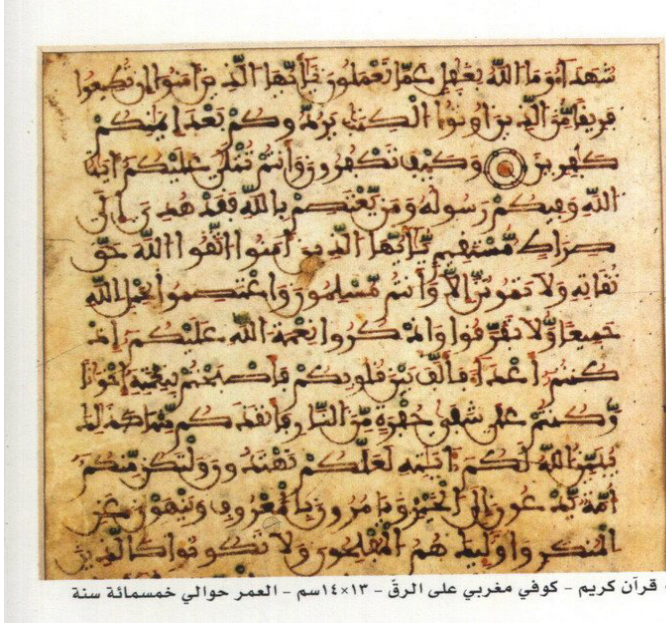 شهداء وما الله بغفل عما تعملون يأيها الذين ءامنوا إن تطيعوا
فريقا من الذين أوتوا الكتب يردوكم بعد إيمنكم
كفرين وكيف تكفرون وأنتم تتلى عليكم ءايت
الله وفيكم رسوله ومن يعتصم بالله فقد هدى إلى
صراط مستقيم يأيها الذين ءامنوا اتقوا الله حق
تقاته ولا تموتن إلا وأنتم مسلمون واعتصموا بحبل الله
جميعا ولا تفرقوا واذكروا نعمة الله عليكم إذ
كنتم أعداء فألف بين قلوبكم فأصبحتم بنعمته إخونا
وكنتم على شفى حفرة من النار فأنقذكم منها كذلك
يبين الله لكم ءايته لعلكم تهتدون ولتكن منكم
أمة يدعون إلى الخير ويامرون بالمعروف وينهون عن
المنكر وأوليك هم المفلحون ولا تكونوا كالذين
قرآن كريم - كوفي مغربي على الرقّ - ١٣×١٤سم - العمر حوالي خمسمائة سنة